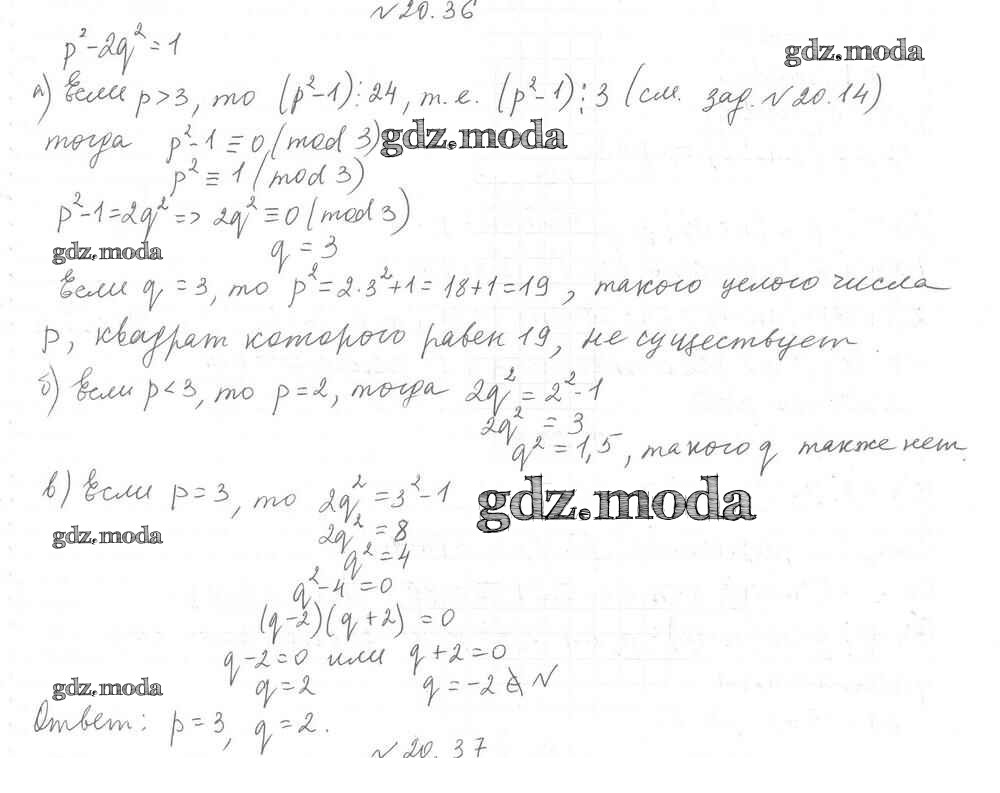 №20.36
p²-2q²=1
gdz.moda
а) Если p>3, то (p²-1)⋮24, т.е. (p²-1)⋮3 (см. зад. №20.14)
тогда p²-1≡0 (mod 3) gdz.moda
p²≡1 (mod 3)
p²-1=2q² => 2q²≡0 (mod 3)
gdz.moda
q = 3
Если q = 3, то p²=2·3²+1=18+1=19, такого целого числа
p, квадрат которого равен 19, не существует.
б) Если p<3, то p=2, тогда 2q²=2²-1
2q²=3
q²=1,5, такого q также нет.
в) Если p=3, то 2q²=3²-1
gdz.moda
2q²=8
gdz.moda
q²=4
q²-4=0
(q-2)(q+2)=0
q-2=0 или q+2=0
gdz.moda
q=2 q=-2 ∉ N
Ответ: p=3, q=2.
№20.37